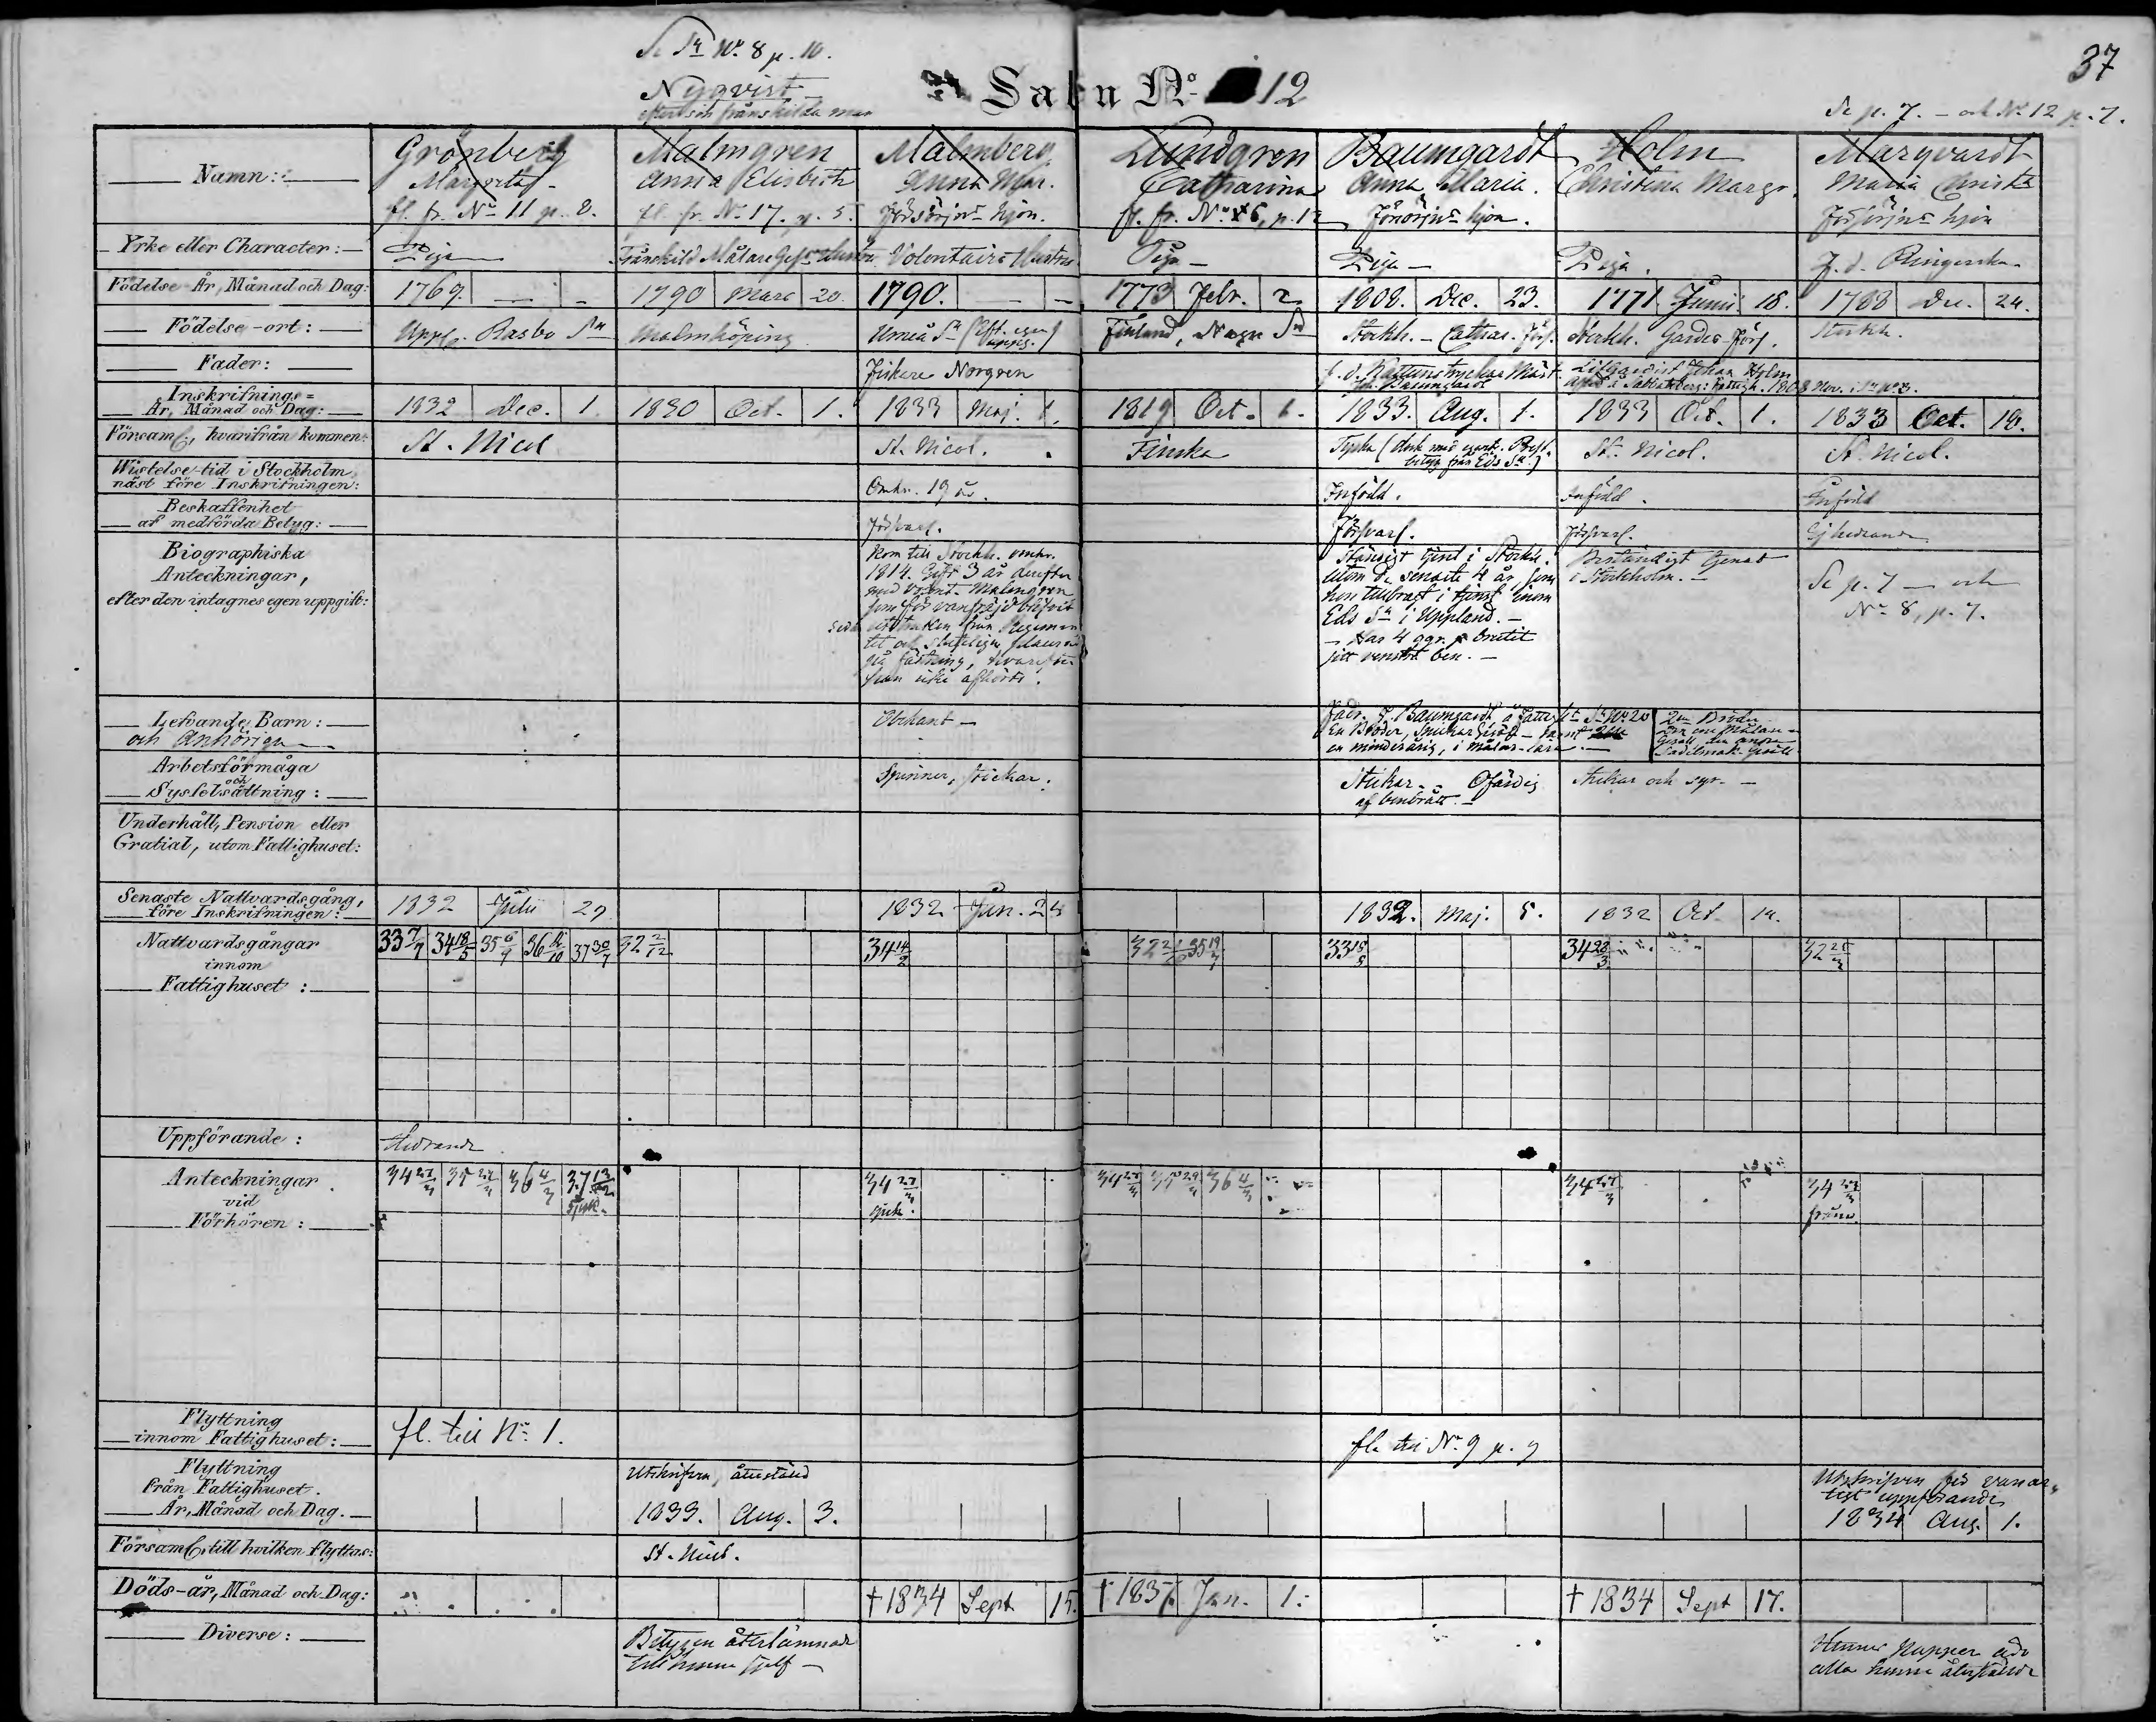 37
Se Sn No. 8 p. 10.
Nyqvist
efter sin frånskilda man
Sal N:o 12
Se p. 7. - och No 12 p. 7.
Namn:
Grönberg
Margreta
fl. fr. No 11 p. 2.
Malmgren
Anna Elisbeth
fl. fr. No 17. p. 5.
Malmberg
Anna Mar.
Försörjns hjon.
Lundgren
Catharina
fl. fr. No 6, p. 12
Baumgardt
Anna Maria.
Försörjns hjon.
Holm
Christina Margr.
Marqvardt
Maria Christ.
Försörjns hjon
Yrke eller Character:
Piga
Frånskild Målare Ges. Hustru
Volontairs Hustru
Piga -
Piga -
Piga.
f. d. Ringerska
Födelse-År, Månad och Dag:
1769. - -
1790 Mars 20.
1790. - -
1773 Febr. 2
1808. Dec. 23.
1771. Junii 18.
1788 Dec. 24.
Födelse-ort:
Uppl. Rasbo Sn
Malmköping
Umeå Sn (Eft. egen uppg.)
Finland, Nagu Sn
Stockh. - Cathar. Förs.
Stockh. Gardes-Förs.
Stockh.
Fader:
Fiskare Norgren
f. d. Kattunstryckare Mäst.
Baumgardt
Johan Holm
Inskrifnings=
År, Månad och Dag:
1832 Dec. 1.
1830 Oct. 1.
1833 Maj. 1.
1819 Oct. 6.
1833. Aug. 1.
1833 Oct. 1.
1833 Oct. 18.
Församl., hvarifrån kommen:
St. Nicol
St. Nicol.
Finska
Tyska (dock med egentl. Prest-
betyg från Eds Sn.)
St. Nicol.
St. Nicol.
Wistelse-tid i Stockholm
näst före Inskrifningen:
Omkr. 19 år.
Infödd.
Infödd.
Infödd
Beskaffenhet
af medförda Betyg:
Försvarl.
Försvarl.
Försvarl.
Ej hedrande
Biographiska
Anteckningar,
efter den intagnes egen uppgift:
Kom till Stockh. omkr.
1814. Gift 3 år derefter
med Volont. Malmgren
som för vanfrejd blifvit
utstruken från Regemen-
tet och slutligen
på fästning, hvarefter
han icke afhörts.
Ständigt tjent i Stockh.
utom de senaste 4 år, som
hon tillbragt i tjenst inom
Eds Sn i Uppland. -
- Har 4 ggr. brutit
sitt venstra ben. -
Beständigt tjenat
i Stockholm. -
Se p. 7 - och
No 8, p. 7.
Lefvande Barn:
och Anhörige
Obekant -
Fadr. J. Baumgardt å Fattigh. Sn No 20
En Broder, Snickar Gesäll - samt
en minderårig, i målar-lära.
2ne Bröder
Den ene Målare
Gesäll, den andre
Sadelmak. Gesäll
Arbetsförmåga
och
Sysselsättning:
Spinner, stickar.
Stickar. - Ofärdig
af benbrått. -
Stickar och syr. -
Underhåll, Pension eller
Gratial, utom Fattighuset:
Senaste Nattvardsgång,
före Inskrifningen:
1832 Julii 29
1832 Jun. 24
1832. Maj. 5.
1832 Oct. 14.
Nattvardsgångar
innom
Fattighuset:
33 7/7 34 18/5 35 6/9 36 37 30/7
32 2/12
34 14/2
35 19/7
33 18/8
34 23/3
Uppförande:
Hedrande
Anteckningar
vid
Förhören:
34 27/3 35 36 4/3 37 13/2
Sjuk.
34 27/3
sjuk.
34 27/3 36 4/3
34 27/3
34 27/3
frånv.
Flyttning
innom Fattighuset:
fl. till No. 1.
fl. till No. 9 p. 9
Flyttning
från Fattighuset.
År, Månad och Dag.
Utskrifven, återstånd
1833. Aug. 3.
Utskrifven för vanar-
tigt uppförande
1834 Aug. 1.
Församl. till hvilken flyttas:
St. Nicol.
Döds-år, Månad och Dag:
† 1834 Sept 15.
† 1837 Jan. 1.
† 1834 Sept 17.
Diverse:
Betygen återlämnade
till henne sjelf -
Hennes Papper äro
alla henne återställde